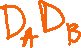 D_A D_B